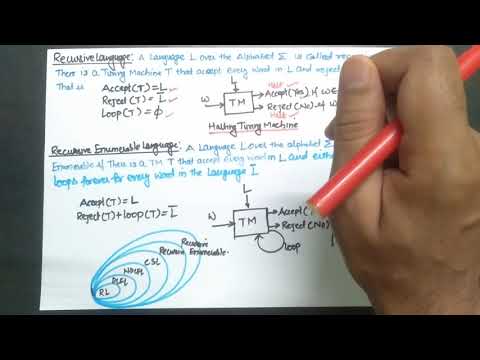 Recursive Language: A Language L over the Alphabet Σ is called
There is a Turing Machine T that accept every word in L and reject
That is Accept(T) = L
Reject(T) = L̅
Loop(T) = ϕ
L
W
TM
Halt
Accept(Yes) if W∈
Reject(No) if W
Halt
Halting Turing Machine
Recursive Enumerable Language: A Language L over the alphabet Σ
Enumerable if There is a TM T that accept every word in L and
loops forever for every word in the Language L̅
Accept(T) = L
Reject(T) + Loop(T) = L̅
L
W
TM
Accept
Reject(No)
loop
Recursive
Recursive Enumerable
CSL
NDCFL
DCFL
RL